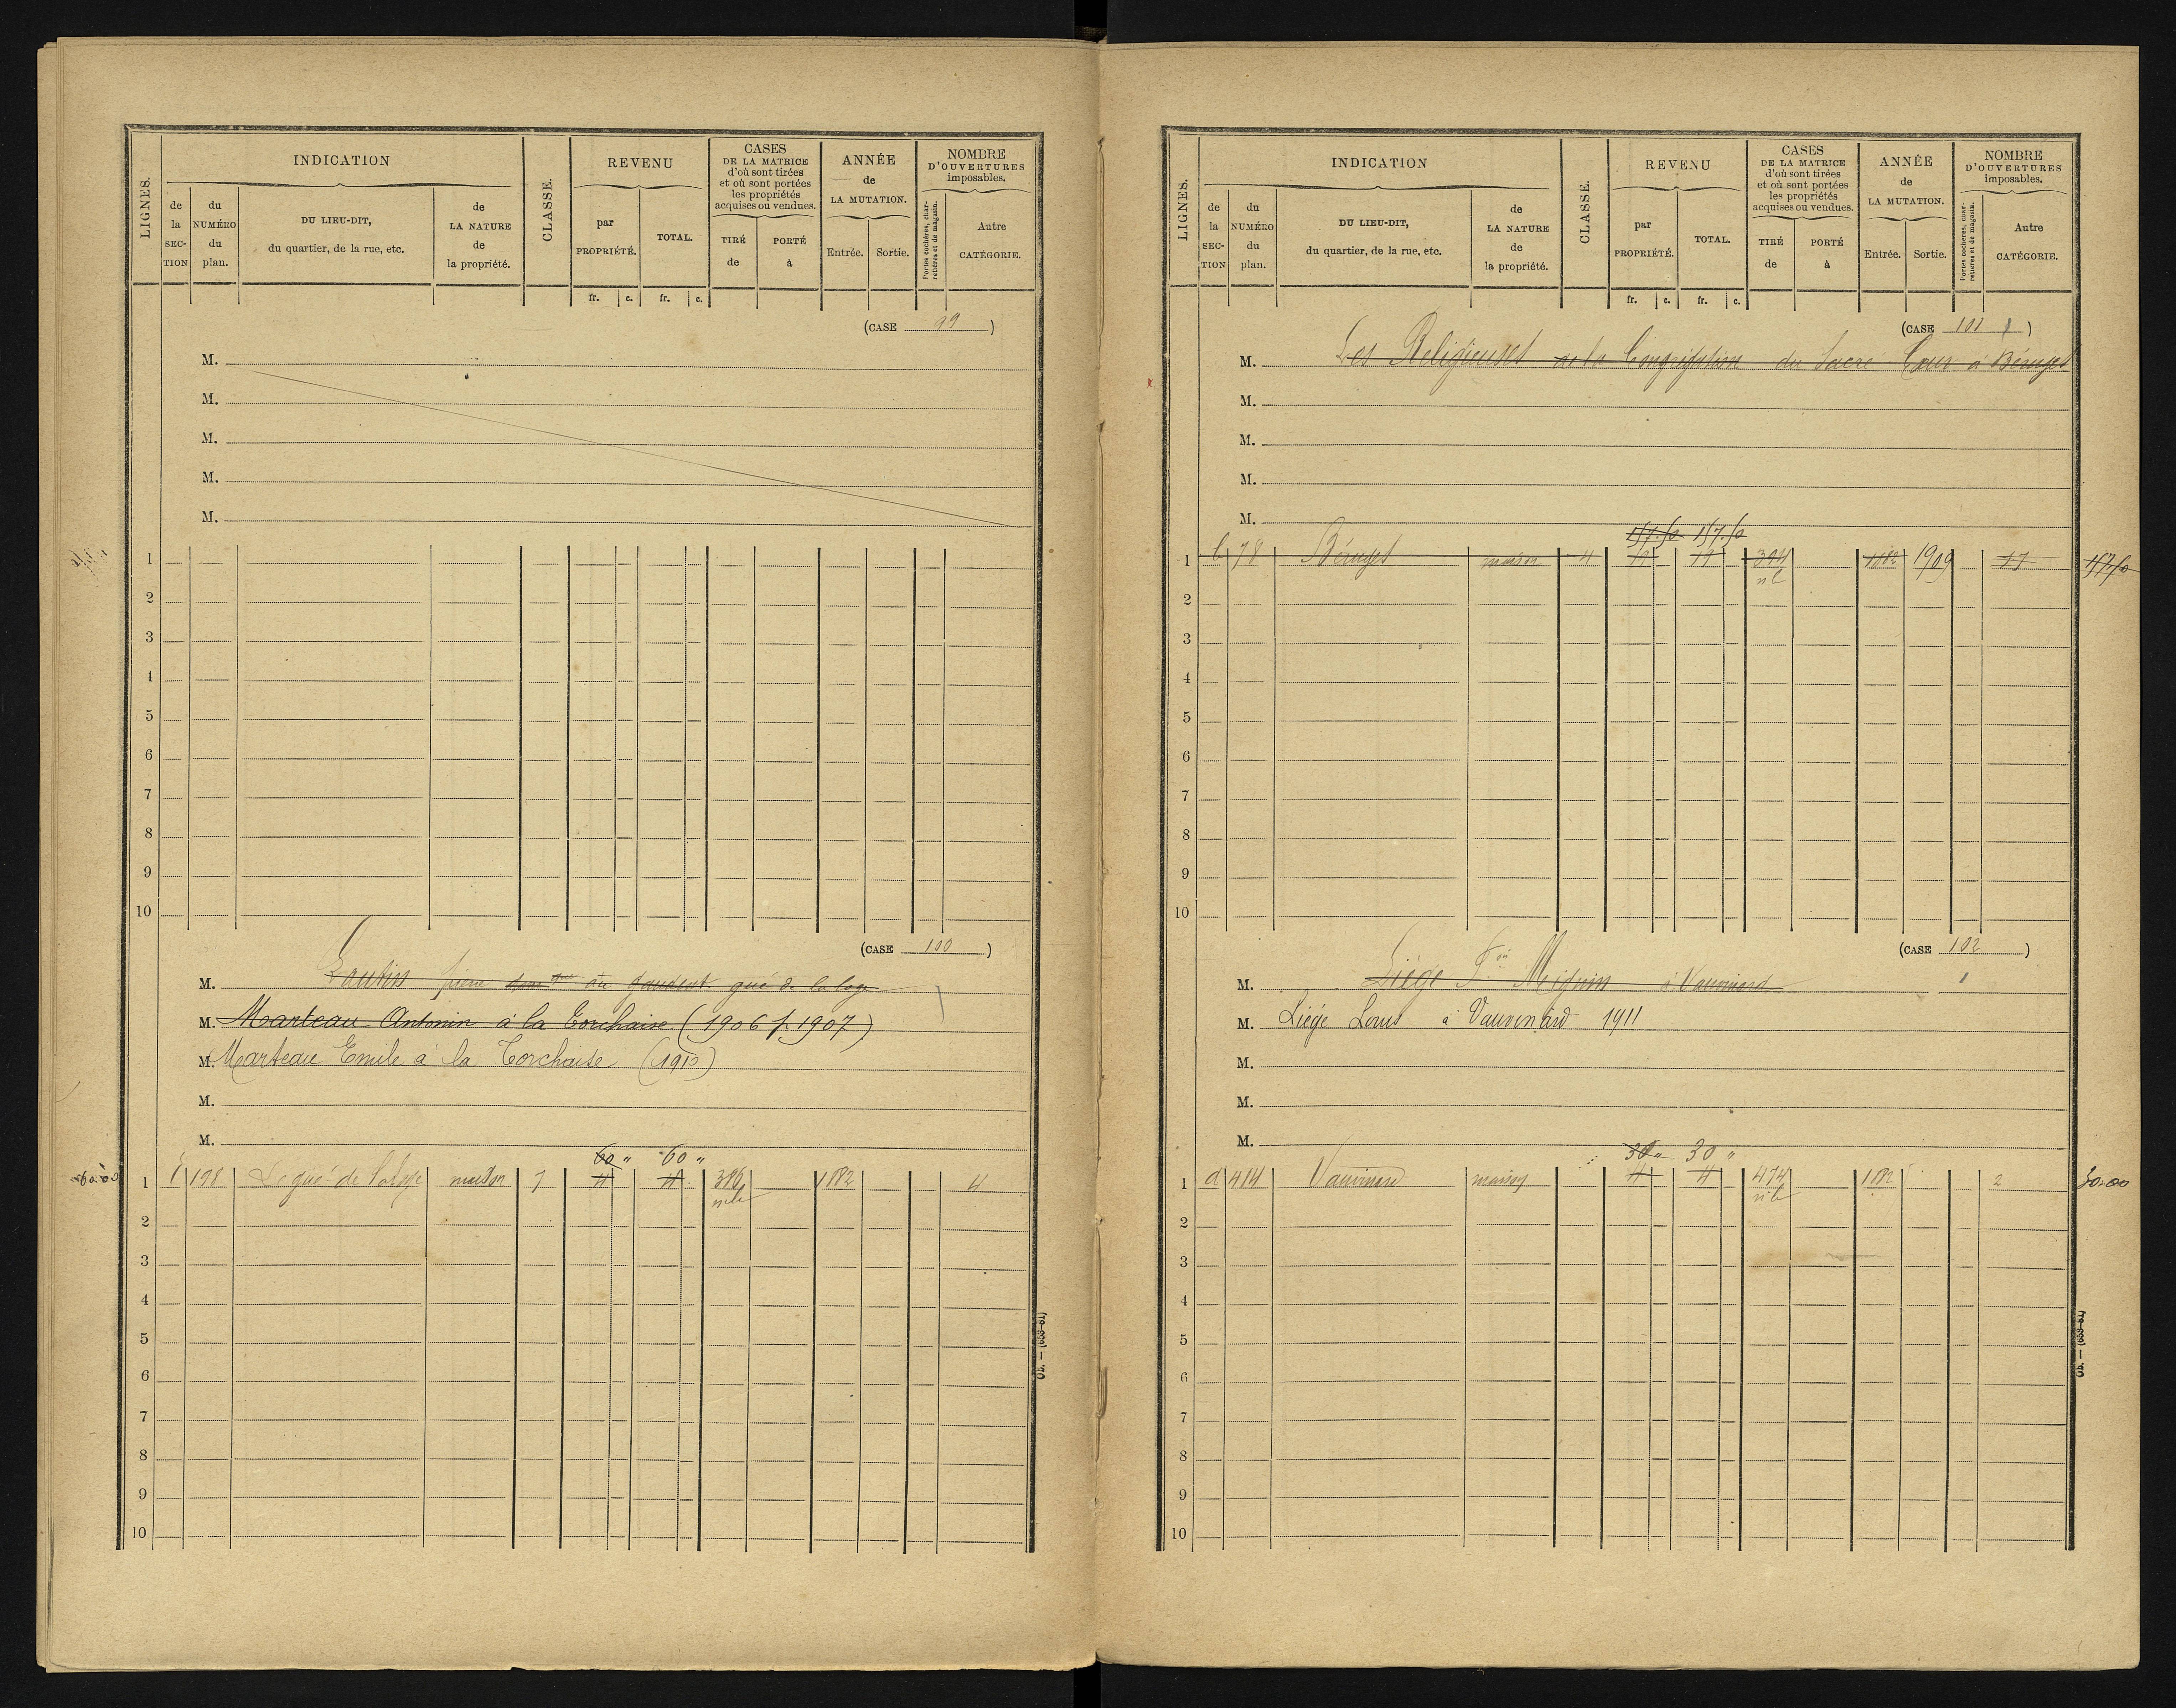 LIGNES.
INDICATION
de la SECTION
du NUMÉRO du plan.
DU LIEU-DIT, du quartier, de la rue, etc.
de LA NATURE de la propriété.
CLASSE.
REVENU
par PROPRIÉTÉ.
TOTAL.
fr. c. fr. c.
CASES DE LA MATRICE d'où sont tirées et où sont portées les propriétés acquises ou vendues.
TIRÉ de
PORTÉ à
ANNÉE de LA MUTATION.
Entrée. Sortie.
NOMBRE D'OUVERTURES imposables.
Portes cochères, charretières et de magasin.
Autre CATÉGORIE.
(CASE 99)
M.
M.
M.
M.
M.
1
2
3
4
5
6
7
8
9
10
(CASE 100)
M. pierre gué de la loge
M. Marteau Antonin à la Torchaise (1906 p. 1907)
M. Marteau Emile à la Torchaise (1910)
M.
M.
60 " 60 "
60.00 1 198 Le gué de la loge maison 7 4 4 386 1882 4
2
3
4
5
6
7
8
9
10
LIGNES.
INDICATION
de la SECTION
du NUMÉRO du plan.
DU LIEU-DIT, du quartier, de la rue, etc.
de LA NATURE de la propriété.
CLASSE.
REVENU
par PROPRIÉTÉ.
TOTAL.
fr. c. fr. c.
CASES DE LA MATRICE d'où sont tirées et où sont portées les propriétés acquises ou vendues.
TIRÉ de
PORTÉ à
ANNÉE de LA MUTATION.
Entrée. Sortie.
NOMBRE D'OUVERTURES imposables.
Portes cochères, charretières et de magasin.
Autre CATÉGORIE.
(CASE 101)
M. Les Religieuses de la Congrégation du Sacre Cœur à Béruges
M.
M.
M.
M.
157.50 157.50
1 78 Béruges maison 4 394 1882 1909 17 157.50
2
3
4
5
6
7
8
9
10
(CASE 102)
M. Liége à Vauvinard
M. Liége Louis à Vauvinard 1911
M.
M.
M.
30 " 30 "
1 d 414 Vauvinard maison 4 4 474 1882 2 30.00
2
3
4
5
6
7
8
9
10